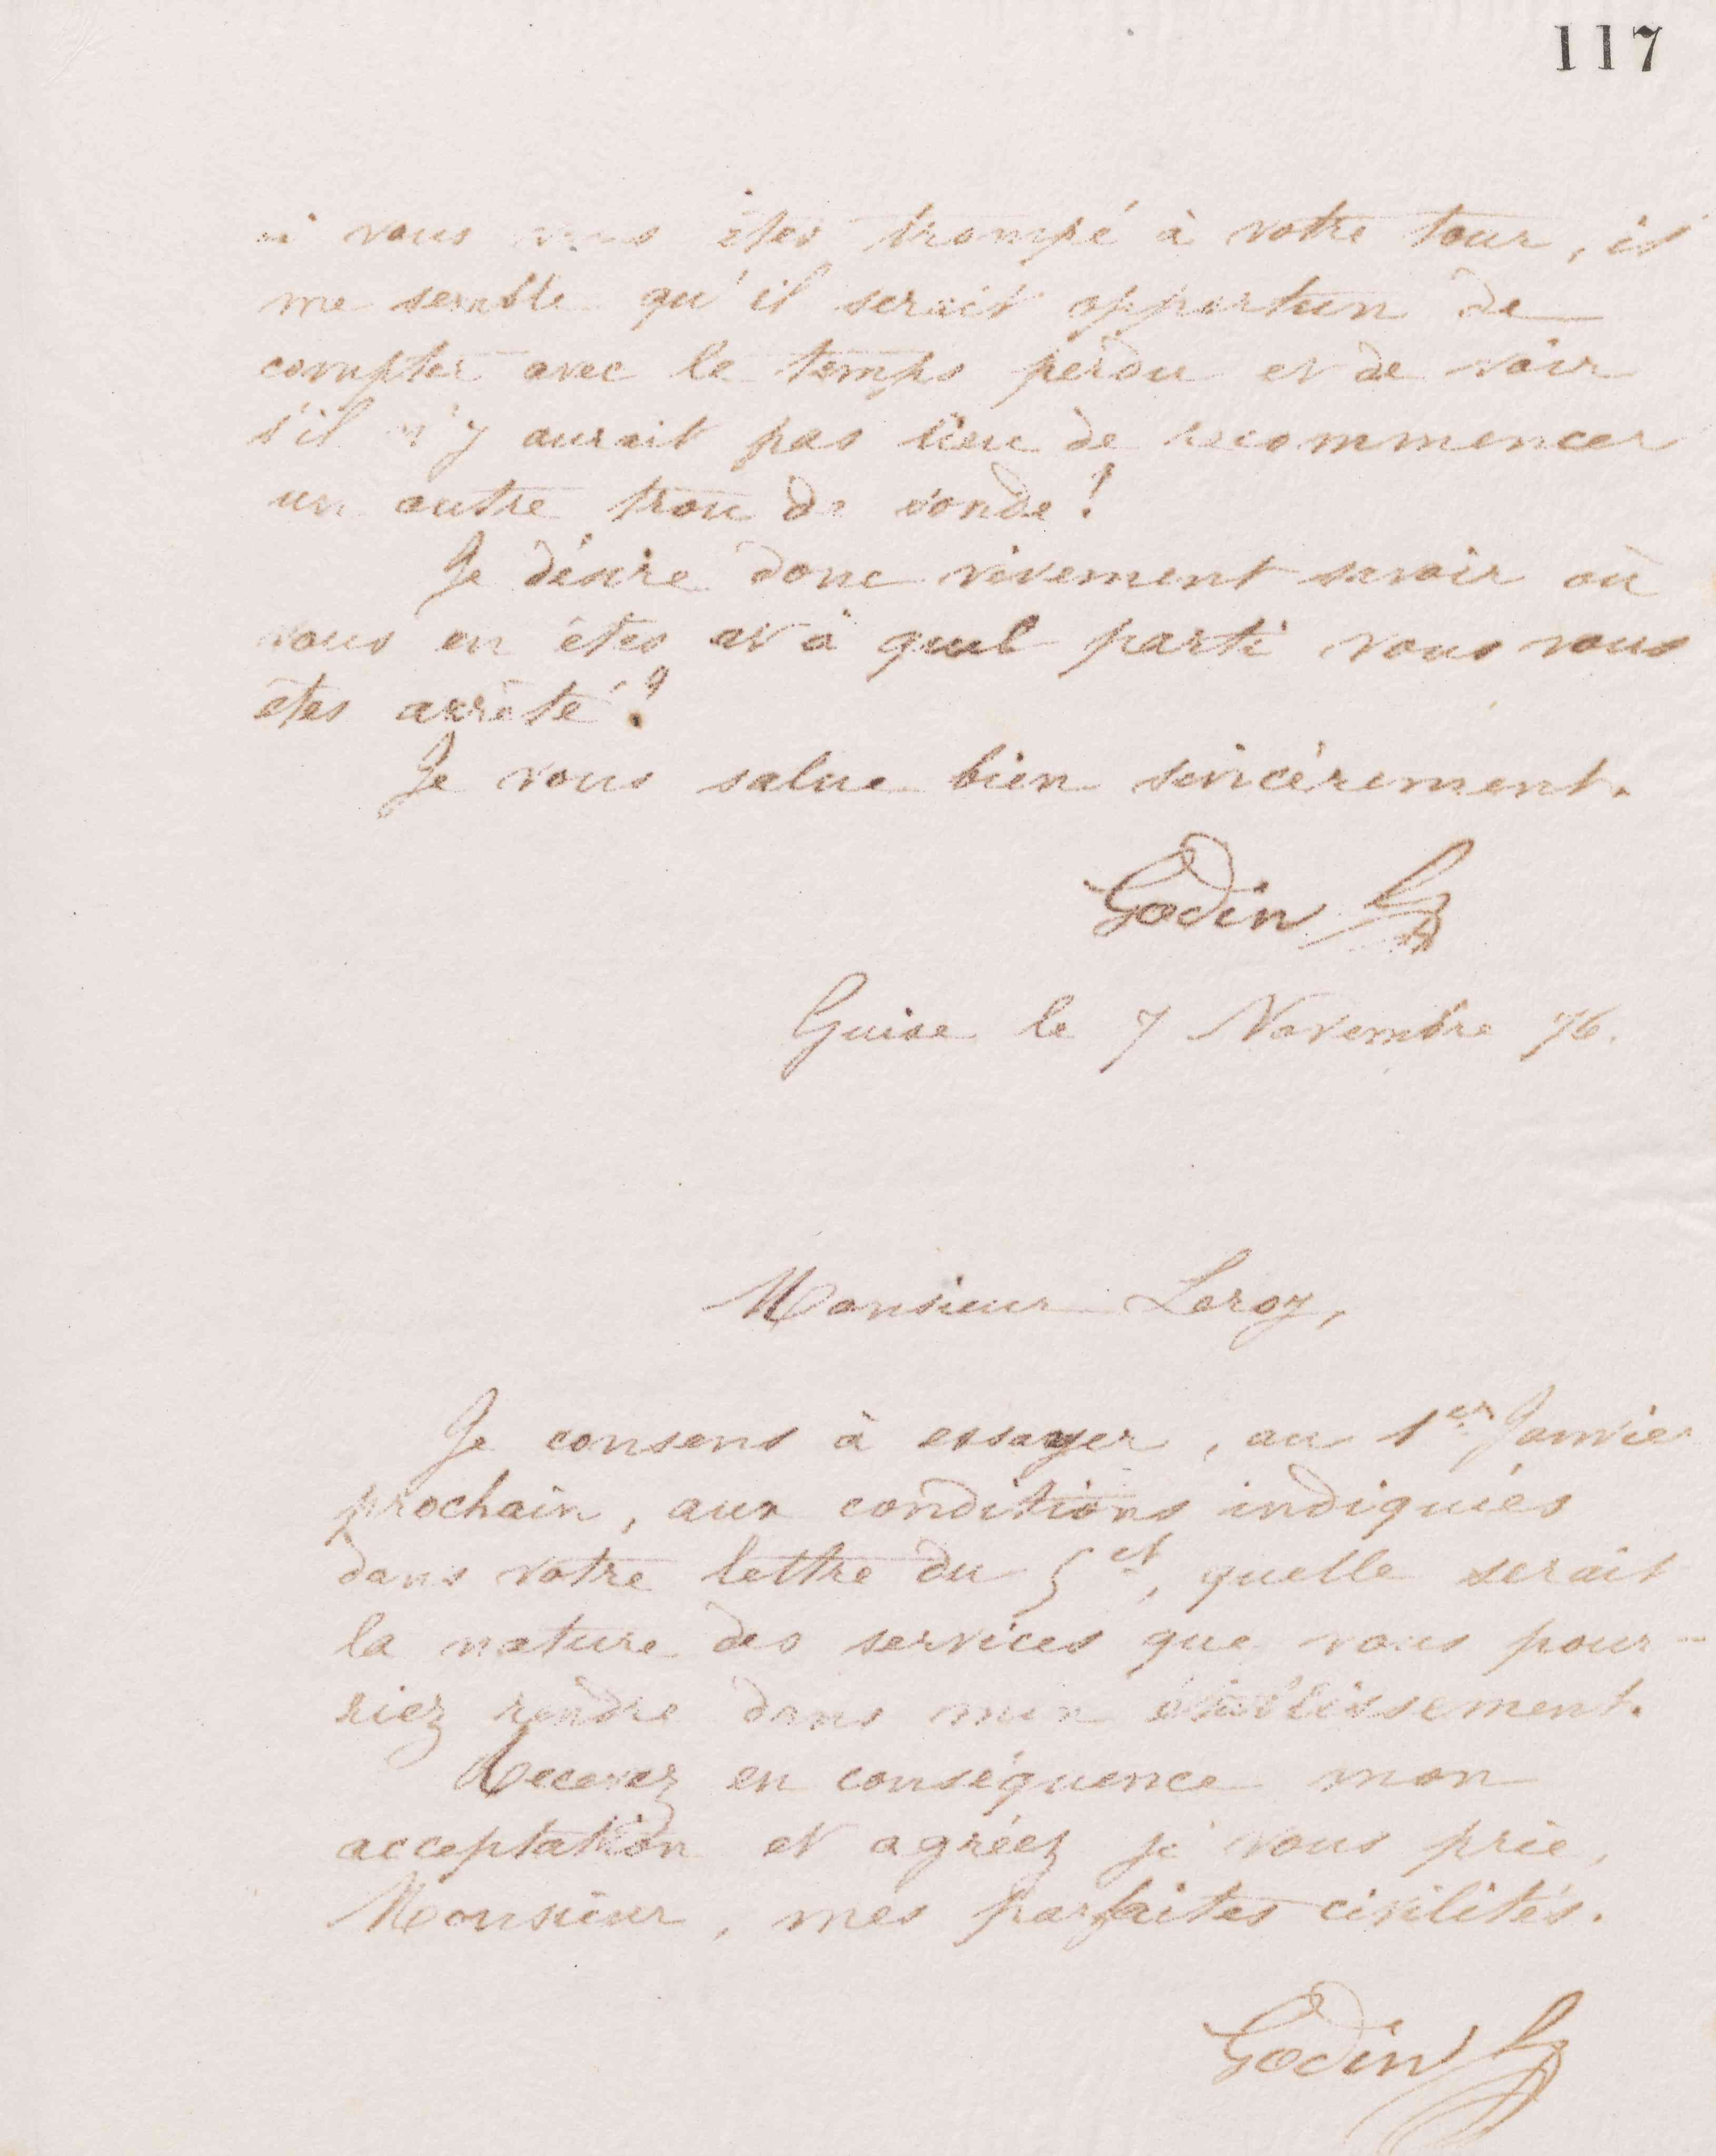 117
si vous vous êtes trompé à votre tour, il
me semble qu'il serait opportun de
compter avec le temps perdu et de voir
s'il n'y aurait pas lieu de recommencer
un autre trou de sonde!
Je désire donc vivement savoir où
vous en êtes et à quel parti vous vous
êtes arrêté?
Je vous salue bien sincèrement.
Godin
Guise le 7 Novembre 76.
Monsieur Leroy,
Je consens à essayer, au 1er Janvier
prochain, aux conditions indiquées
dans votre lettre du 5 ct, quelle serait
la nature des services que vous pour-
riez rendre dans mon établissement.
Recevez en conséquence mon
acceptation et agréez je vous prie,
Monsieur, mes parfaites civilités.
Godin